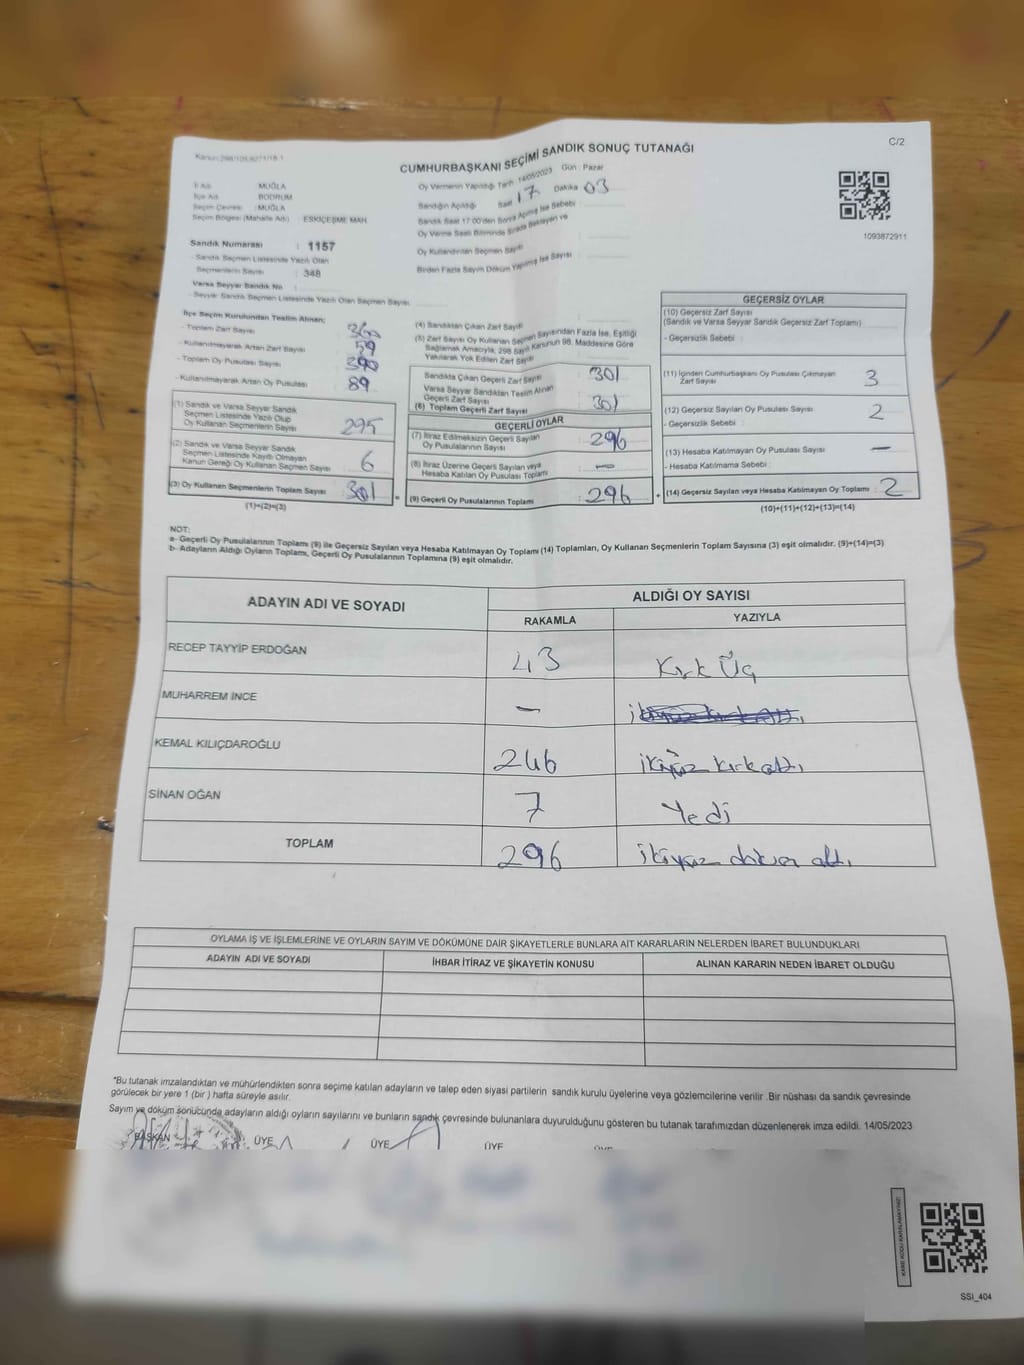 C/2
CUMHURBAŞKANI SEÇİMİ SANDIK SONUÇ TUTANAĞI
İl Adı : MUĞLA
İlçe Adı : BODRUM
Seçim Çevresi : MUĞLA
Seçim Bölgesi (Mahalle Adı) : ESKİÇEŞME MAH.
Sandık Numarası : 1157
- Sandık Seçmen Listesinde Yazılı Olan
Seçmenlerin Sayısı : 348
Varsa Seyyar Sandık No :
- Seyyar Sandık Seçmen Listesinde Yazılı Olan Seçmen Sayısı
Oy Vermenin Yapıldığı Tarih 14/05/2023 Gün : Pazar
Sandığın Açıldığı Saat 17 Dakika 03
Sandık Saat 17:00'den Sonra Açılmış İse Sebebi :
Oy Verme Saati Bitiminde Sırada Bekleyen ve
Oy Kullandırılan Seçmen Sayısı
Birden Fazla Sayım Döküm Yapılmış İse Sayısı :
1093872911
İlçe Seçim Kurulundan Teslim Alınan;
- Toplam Zarf Sayısı : 360
- Kullanılmayarak Artan Zarf Sayısı : 59
- Toplam Oy Pusulası Sayısı : 390
- Kullanılmayarak Artan Oy Pusulası : 89
(1) Sandık ve Varsa Seyyar Sandık
Seçmen Listesinde Yazılı Olup
Oy Kullanan Seçmenlerin Sayısı : 295
(2) Sandık ve Varsa Seyyar Sandık
Seçmen Listesinde Kayıtlı Olmayan
Kanun Gereği Oy Kullanan Seçmen Sayısı : 6
(3) Oy Kullanan Seçmenlerin Toplam Sayısı : 301
(1)+(2)=(3)
(4) Sandıktan Çıkan Zarf Sayısı
(5) Zarf Sayısı Oy Kullanan Seçmen Sayısından Fazla İse, Eşitliği
Sağlamak Amacıyla, 298 Sayılı Kanunun 98. Maddesine Göre
Yakılarak Yok Edilen Zarf Sayısı
Sandıkta Çıkan Geçerli Zarf Sayısı : 301
Varsa Seyyar Sandıktan Teslim Alınan
Geçerli Zarf Sayısı :
(6) Toplam Geçerli Zarf Sayısı : 301
GEÇERLİ OYLAR
(7) İtiraz Edilmeksizin Geçerli Sayılan
Oy Pusulalarının Sayısı : 296
(8) İtiraz Üzerine Geçerli Sayılan veya
Hesaba Katılan Oy Pusulası Toplamı : —
(9) Geçerli Oy Pusulalarının Toplamı : 296
GEÇERSİZ OYLAR
(10) Geçersiz Zarf Sayısı
(Sandık ve Varsa Seyyar Sandık Geçersiz Zarf Toplamı) :
- Geçersizlik Sebebi :
(11) İçinden Cumhurbaşkanı Oy Pusulası Çıkmayan
Zarf Sayısı : 3
(12) Geçersiz Sayılan Oy Pusulası Sayısı : 2
- Geçersizlik Sebebi :
(13) Hesaba Katılmayan Oy Pusulası Sayısı : —
- Hesaba Katılmama Sebebi :
(14) Geçersiz Sayılan veya Hesaba Katılmayan Oy Toplamı : 2
(10)+(11)+(12)+(13)=(14)
NOT:
a- Geçerli Oy Pusulalarının Toplamı (9) ile Geçersiz Sayılan veya Hesaba Katılmayan Oy Toplamı (14) Toplamları, Oy Kullanan Seçmenlerin Toplam Sayısına (3) eşit olmalıdır. (9)+(14)=(3)
b- Adayların Aldığı Oyların Toplamı, Geçerli Oy Pusulalarının Toplamına (9) eşit olmalıdır.
ADAYIN ADI VE SOYADI ALDIĞI OY SAYISI
RAKAMLA YAZIYLA
RECEP TAYYİP ERDOĞAN 43 Kırk Üç
MUHARREM İNCE —
KEMAL KILIÇDAROĞLU 246 ikiyüz kırkaltı
SİNAN OĞAN 7 Yedi
TOPLAM 296 ikiyüz doksan altı
OYLAMA İŞ VE İŞLEMLERİNE VE OYLARIN SAYIM VE DÖKÜMÜNE DAİR ŞİKAYETLERLE BUNLARA AİT KARARLARIN NELERDEN İBARET BULUNDUKLARI
ADAYIN ADI VE SOYADI İHBAR İTİRAZ VE ŞİKAYETİN KONUSU ALINAN KARARIN NEDEN İBARET OLDUĞU
*Bu tutanak imzalandıktan ve mühürlendikten sonra seçime katılan adayların ve talep eden siyasi partilerin sandık kurulu üyelerine veya gözlemcilerine verilir .Bir nüshası da sandık çevresinde
görülecek bir yere 1 (bir ) hafta süreyle asılır.
Sayım ve döküm sonucunda adayların aldığı oyların sayılarını ve bunların sandık çevresinde bulunanlara duyurulduğunu gösteren bu tutanak tarafımızdan düzenlenerek imza edildi. 14/05/2023
BAŞKAN ÜYE ÜYE ÜYE
SSİ_404